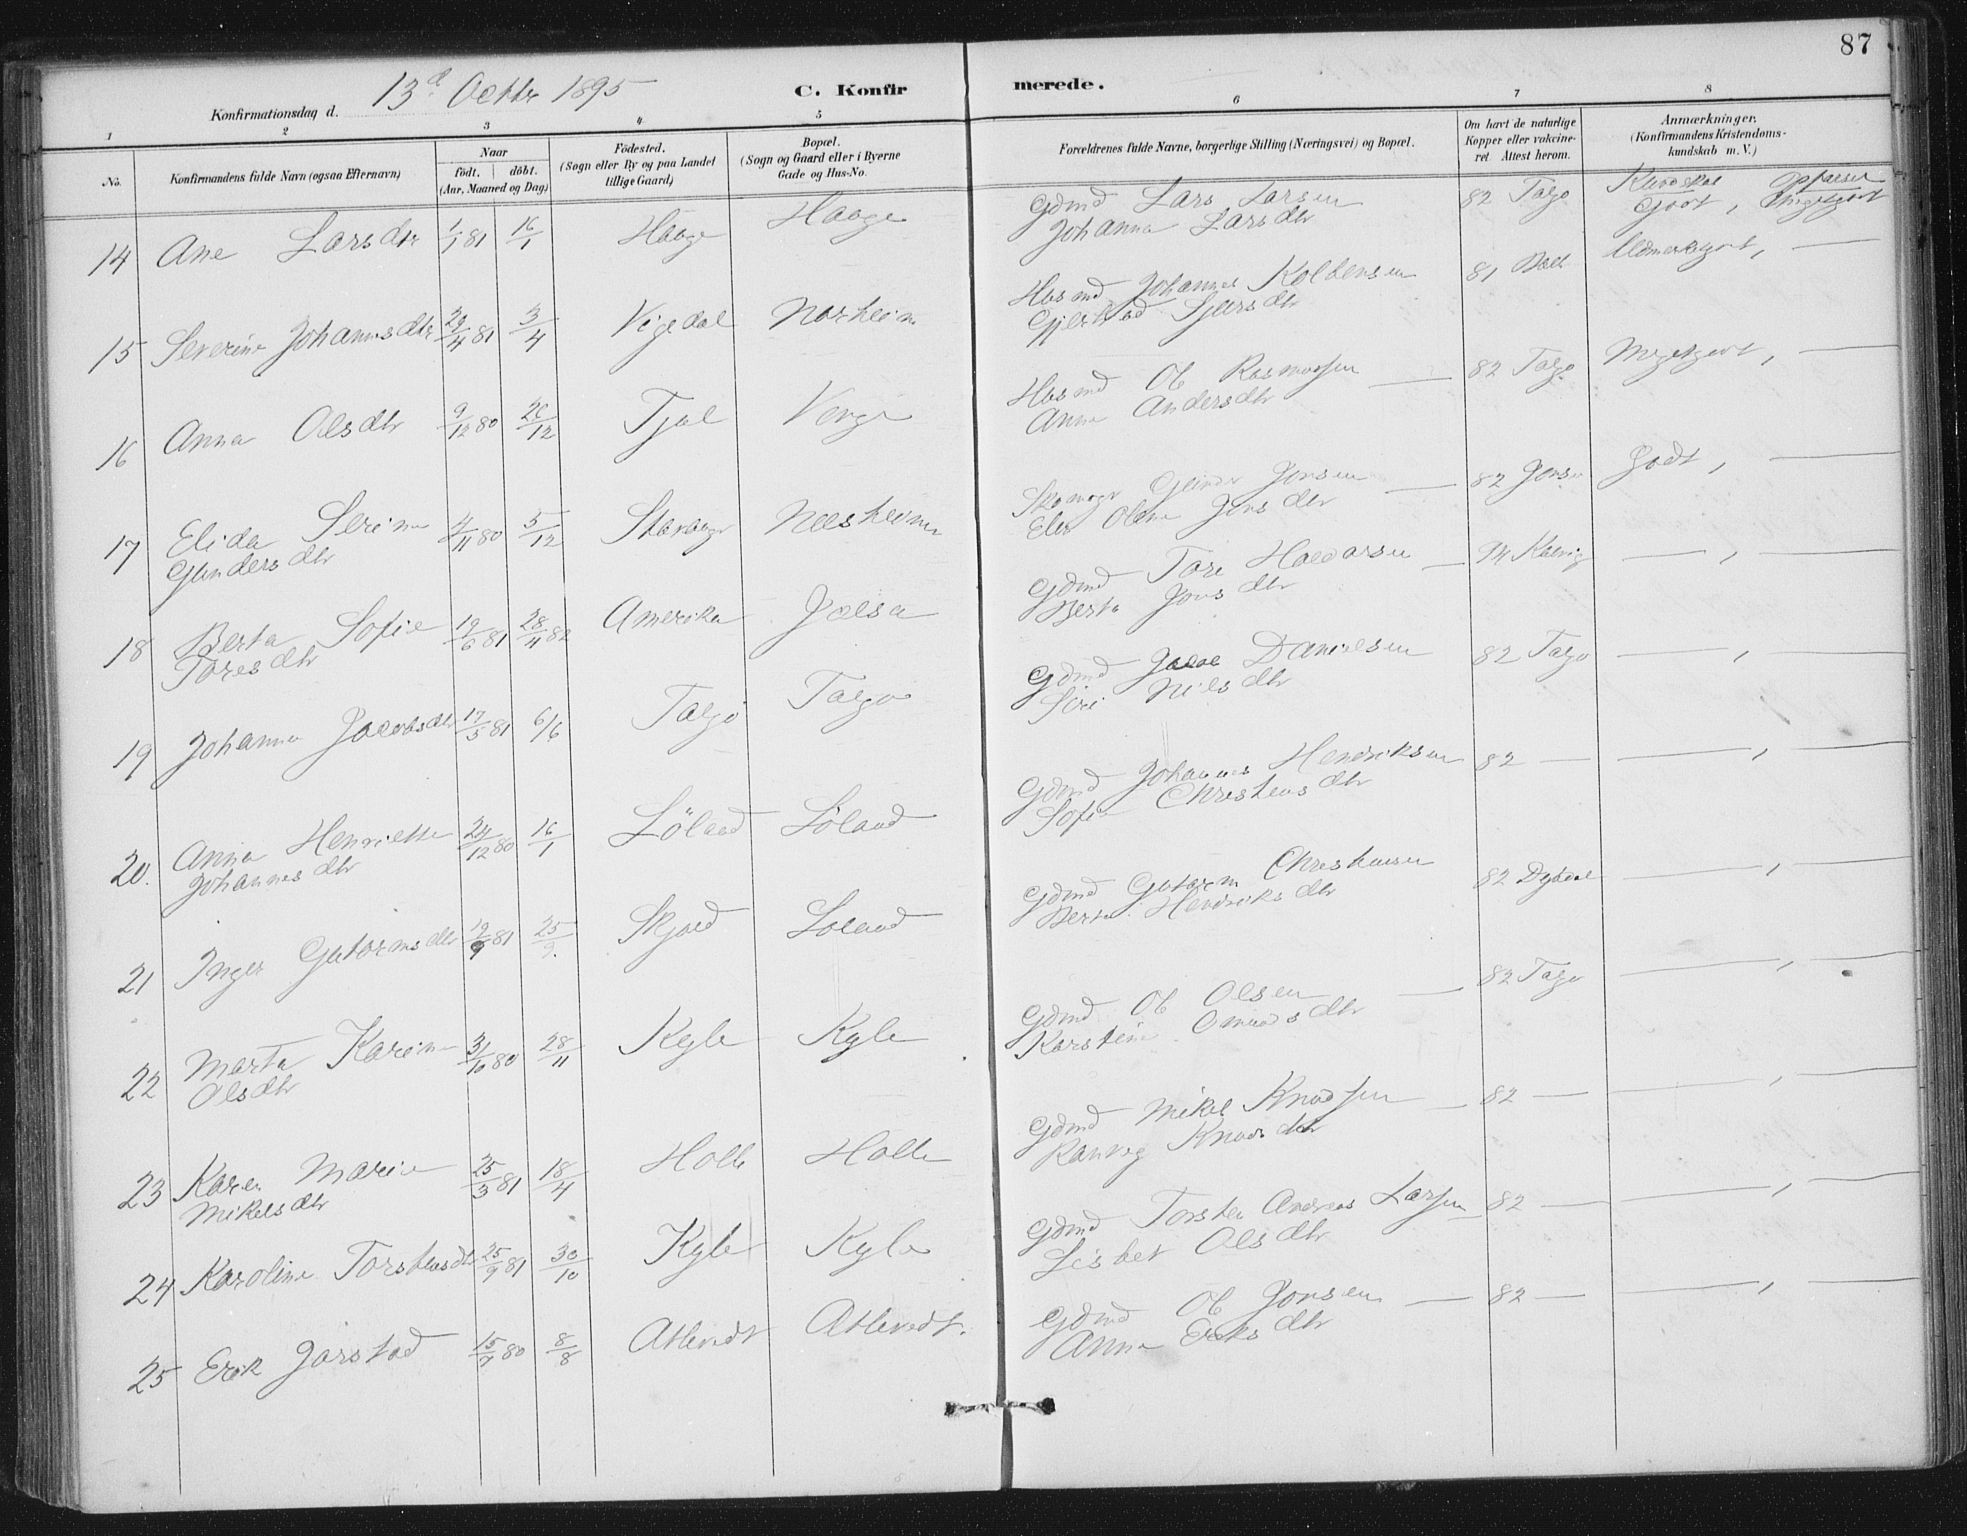 87
Konfirmationsdag d. 13d Octbr 1895
C. Konfirmerede.
1 2 3 4 5 6 7 8
No.
Konfirmandens fulde Navn (ogsaa Efternavn)
Naar
födt. döbt.
(Aar, Maaned og Dag)
Födested.
(Sogn eller By og paa Landet
tillige Gaard)
Bopæl.
(Sogn og Gaard eller i Byerne
Gade og Hus-No.
Forældrenes fulde Navne, borgerlige Stilling (Næringsvei) og Bopæl.
Om havt de naturlige
Kopper eller vakcine-
ret Attest herom.
Anmærkninger.
(Konfirmandens Kristendoms-
kundskab m. V.)
14 Ane Larsdtr 1/1 81 16/1 Haage Haage Gdmd Lars Larsen 82 Talgø Kundskab
Johanna Larsdtr Godt,
15 Severine Johannesdtr 29/4 81 3/4 Vigedal Norheim Husmd Johannes Kolbensen 81
Gjertrud Sjursdtr
16 Anna Olsdtr 9/12 80 26/12 Tjøl Verge Husmd Ole Rasmussen — 82 Talgø Megetgodt, —
Anna Andersdtr
17 Elida Serine 4/11 80 5/12 Stavanger Neesheim Skomagr Gunder Jonsen — 82 Godt, —
Gundersdtr Eles Oline Jonsdtr
18 Berta Sofie 19/6 81 28/4 82 Amerika Jælsa Gdmd Tore Halvorsen — 94 — , —
Toresdtr Berta Jonsdtr
19 Johanna Jacobsdtr 17/5 81 6/6 Talgø Talgø Gdmd Jacob Danielsen 82 Talgø — , —
Siri Nilsdtr
20. Anna Henriette 24/12 80 16/1 Löland Löland Gdmd Johannes Hendriksen 82 — — , —
Johannesdtr Sofie Christensdtr
21 Inger Gutormsdtr 19/9 81 25/9. Skjold Loland Gdmd Gutorm Christensen 82 — , —
Berta Hendriksdtr
22 Marta Karine 31/10 80 28/11 Kyle Kyle Gdmd Ole Olsen — 82 Talgø — , —
Olsdtr Karstine Omundsdtr
23 Karen Marie 25/3 81 18/4 Holle Holle Gdmd Mikel Knudsen — 82 — — , —
Mikelsdtr Ranveg Knudsdtr
24 Karoline Torstensdtr 25/9 81 30/10 Kyle Kyle Gdmd Torsten Andreas Larsen 82 — — , —
Lisbet Olsdtr
25 Erik Jørstad 15/7 80 8/8 Gdmd Ole Jonsen — 82 — — , —
Anna Eriksdtr